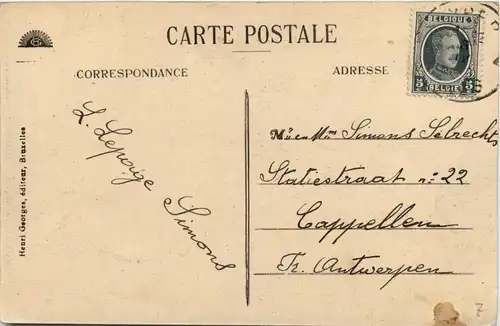 CARTE POSTALE
BELGIQUE
5 BELGIË 5
CORRESPONDANCE
ADRESSE
L. Lepaige
Simons
Mr en Mme Simons Selrechts
Statiestraat n: 22
Cappellen
Pr. Antwerpen
Henri Georges, éditeur, Bruxelles
7